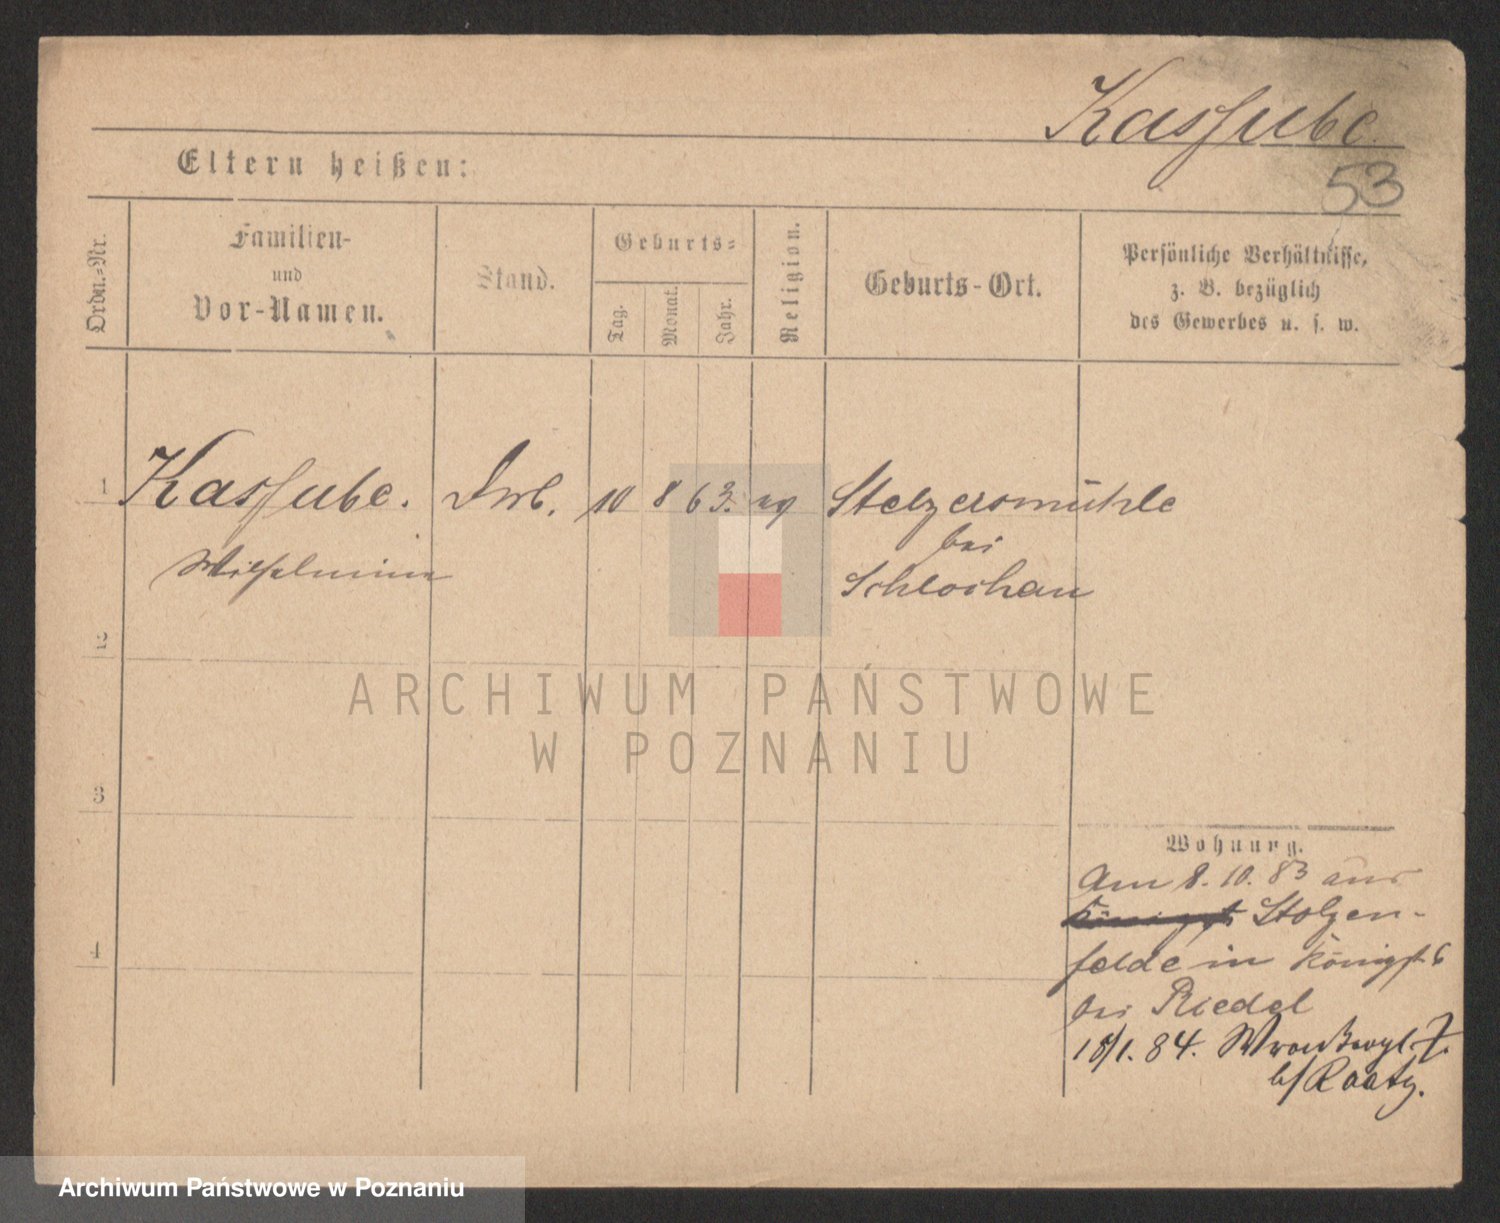 Kassube.
53
Eltern heißen:
Ordn.=Nr.
Familien-
und
Vor-Namen.
Stand.
Geburts=
Tag.
Monat.
Jahr.
Religion.
Geburts-Ort.
Persönliche Verhältnisse,
z. B. bezüglich
des Gewerbes u. s. w.
1 Kassube. 10 8 63. Stelzersmühle
bei
Wilhelmine Schlochau
2
3
4
Wohnung.
Am 8.10.83 aus
Königst. Stolzen-
felde in Königst. 6
bei Riedel
18/1. 84. 7.
b/Raatz.
ARCHIWUM PAŃSTWOWE
W POZNANIU
Archiwum Państwowe w Poznaniu